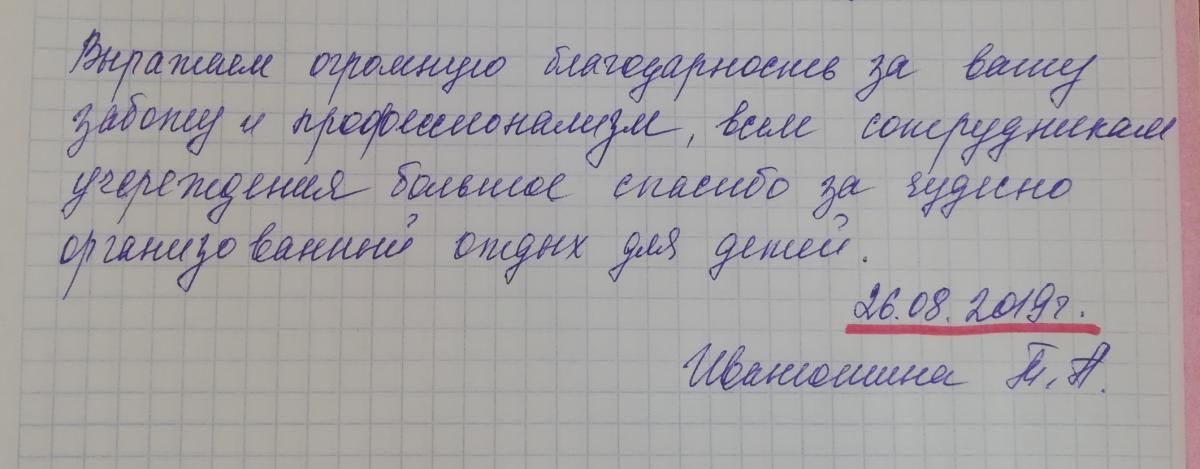 Выражаем огромную благодарность за вашу
заботу и профессионализм, всем сотрудникам
учереждения большое спасибо за чудесно
организованный отдых для детей.
26.08.2019г.
Т. А.